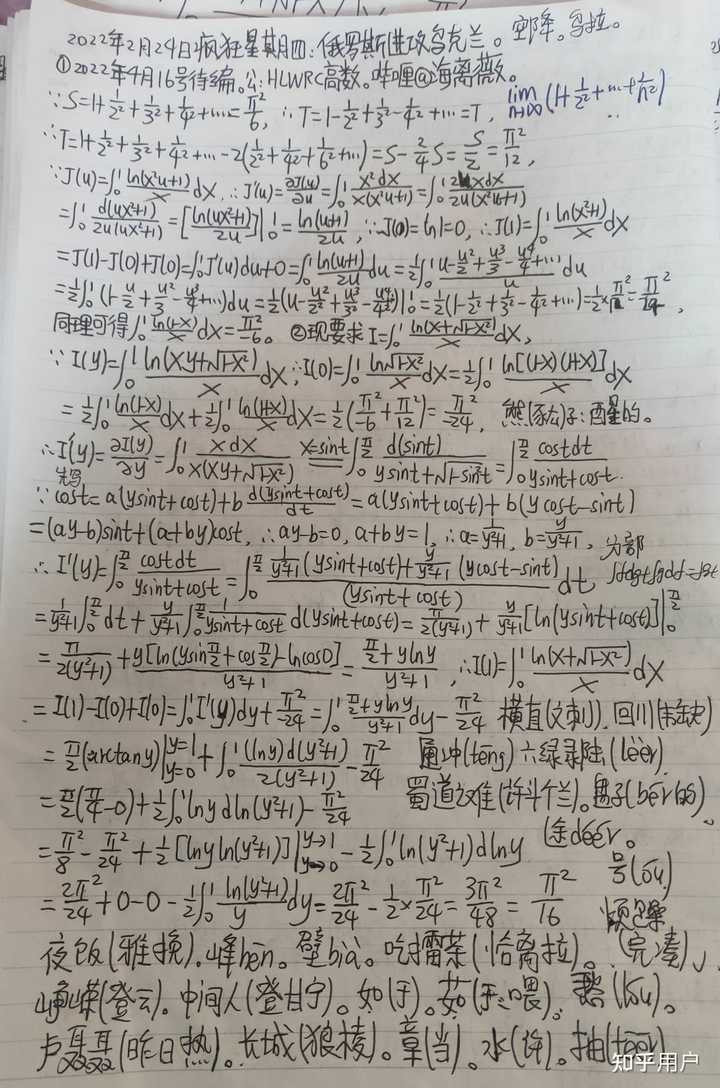 2022年2月24日疯狂星期四:俄罗斯进攻乌克兰。空降。乌拉。
①2022年4月16号待编。公:HLWRC高数。哔哩@海离薇。
∵S=1+1/2²+1/3²+1/4²+…=π²/6, ∴T=1-1/2²+1/3²-1/4²+…=T, lim n→∞ (1+1/2²+…+1/n²)
∴T=1+1/2²+1/3²+1/4²+…-2(1/2²+1/4²+1/6²+…)=S-2/4 S=S/2=π²/12,
∵J(u)=∫₀¹ ln(x²u+1)/x dx, ∴J'(u)=∂J(u)/∂u=∫₀¹ x²dx/x(x²u+1)=∫₀¹ 2uxdx/2u(x²u+1)
=∫₀¹ d(ux²+1)/2u(ux²+1)=[ln(ux²+1)/2u]|₀¹=ln(u+1)/2u, ∵J(0)=ln1=0, ∴J(1)=∫₀¹ ln(x²+1)/x dx
=J(1)-J(0)+J(0)=∫₀¹J'(u)du+0=∫₀¹ ln(u+1)/2u du=1/2∫₀¹ (u-u²/2+u³/3-u⁴/4+…)/u du
=1/2∫₀¹(1-u/2+u²/3-u³/4+…)du=1/2(u-u²/2²+u³/3²-u⁴/4²)|₀¹=1/2(1-1/2²+1/3²-1/4²+…)=1/2×π²/12=π²/24,
同理可得∫₀¹ ln(1-x)/x dx=π²/-6。 ②现要求I=∫₀¹ ln(x+√1-x²)/x dx,
∵I(y)=∫₀¹ ln(xy+√1-x²)/x dx, ∴I(0)=∫₀¹ ln√1-x²/x dx=1/2∫₀¹ ln[(1-x)(1+x)]/x dx
=1/2∫₀¹ ln(1-x)/x dx+1/2∫₀¹ ln(1+x)/x dx=1/2(π²/-6+π²/12)=π²/-24, 熊(孩去)子:酉星的。
∴I'(y)=∂I(y)/∂y=∫₀¹ xdx/x(xy+√1-x²) x=sint ∫₀^(π/2) d(sint)/ysint+√1-sin²t=∫₀^(π/2) costdt/ysint+cost.
先写
∵cost=a(ysint+cost)+b d(ysint+cost)/dt=a(ysint+cost)+b(ycost-sint)
=(ay-b)sint+(a+by)cost, ∴ay-b=0, a+by=1, ∴a=1/y²+1, b=y/y²+1, 分部
∴I'(y)=∫₀^(π/2) costdt/ysint+cost=∫₀^(π/2) (1/y²+1 (ysint+cost)+y/y²+1 (ycost-sint))/(ysint+cost) dt, ∫fdg+∫gdf=fg
=1/y²+1∫₀^(π/2)dt+y/y²+1∫₀^(π/2) 1/ysint+cost d(ysint+cost)=π/2(y²+1)+y/y²+1[ln(ysint+cost)]|₀^(π/2)
=π/2(y²+1)+y[ln(ysinπ/2+cosπ/2)-lncos0]/y²+1=(π/2+ylny)/y²+1, ∴I(1)=∫₀¹ ln(x+√1-x²)/x dx
=I(1)-I(0)+I(0)=∫₀¹I'(y)dy+π²/-24=∫₀¹ (π/2+ylny)/y²+1 dy-π²/24 横直(文刺). 回川
=π/2(arctany)|y=1 y=0+∫₀¹ (lny)d(y²+1)/2(y²+1)-π²/24 (tēng)六绿录陆,(lèer)
=π/2(π/4-0)+1/2∫₀¹lnydln(y²+1)-π²/24 蜀道之难(许斗个兰).
=π²/8-π²/24+1/2[lnyln(y²+1)]|y→1 y→0-1/2∫₀¹ln(y²+1)dlny 途deer。
=2π²/24+0-0-1/2∫₀¹ ln(y²+1)/y dy=2π²/24-1/2×π²/24=3π²/48=π²/16
号(óu)
夜饭(雅挽).峰bēn。壁bià。吃擂茶(恰离拉)。(完凑)
峥嵘(登云).中间人(登甘宁)。如(于)。茹(于:喂).
卢聂聂(昨日热)。长城(狼棱)。章(当)。水(许)。抽
知乎用户